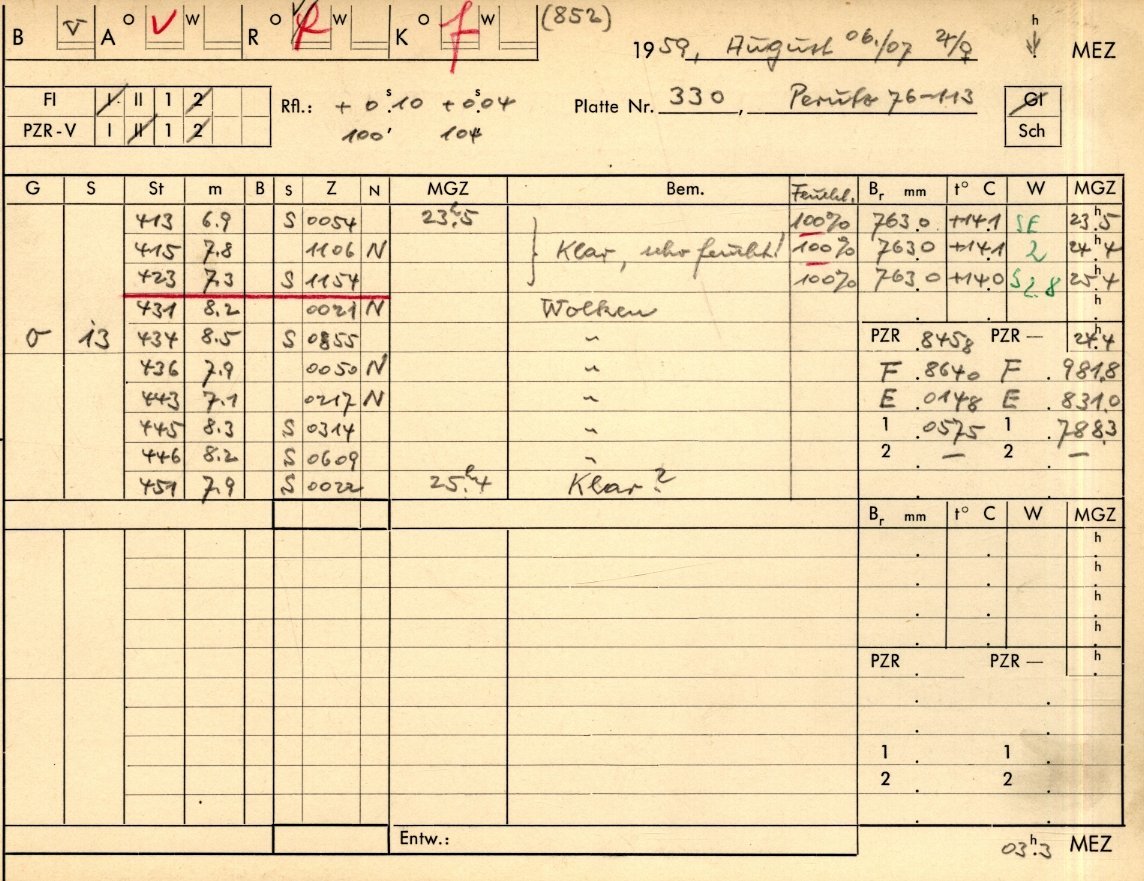 B V A O V W R O R W K O f W (852)
1959, August 06./07 ♃/♀ h MEZ
FI I II 1 2 Rfl.: + 0ˢ.10 + 0ˢ.04 Platte Nr. 330, Perutz 76-113 Gl
PZR-V I II 1 2 100' 104 Sch
G S St m B S Z N MGZ Bem. Feucht. Br mm t° C W MGZ
413 6.9 S 0054 23h.5 100% 763.0 +14.1 SE 23h.5
415 7.8 1106 N Klar, sehr feucht! 100% 763.0 +14.1 2 24h.4
423 7.3 S 1154 100% 763.0 +14.0 S 2.8 25h.4
431 8.2 0021 N Wolken h
σ 13 434 8.5 S 0855 " PZR .8458 PZR — 24h.4
436 7.9 0050 N " F .8640 F . 981.8
443 7.1 0217 N " E .0148 E . 831.0
445 8.3 S 0314 " 1 .0575 1 . 788.3
446 8.2 S 0609 " 2 . — 2 . —
451 7.9 S 0022 25h.4 Klar?
Br mm t° C W MGZ
h
h
h
h
PZR PZR — h
1 1
2 2
Entw.:
03h.3 MEZ